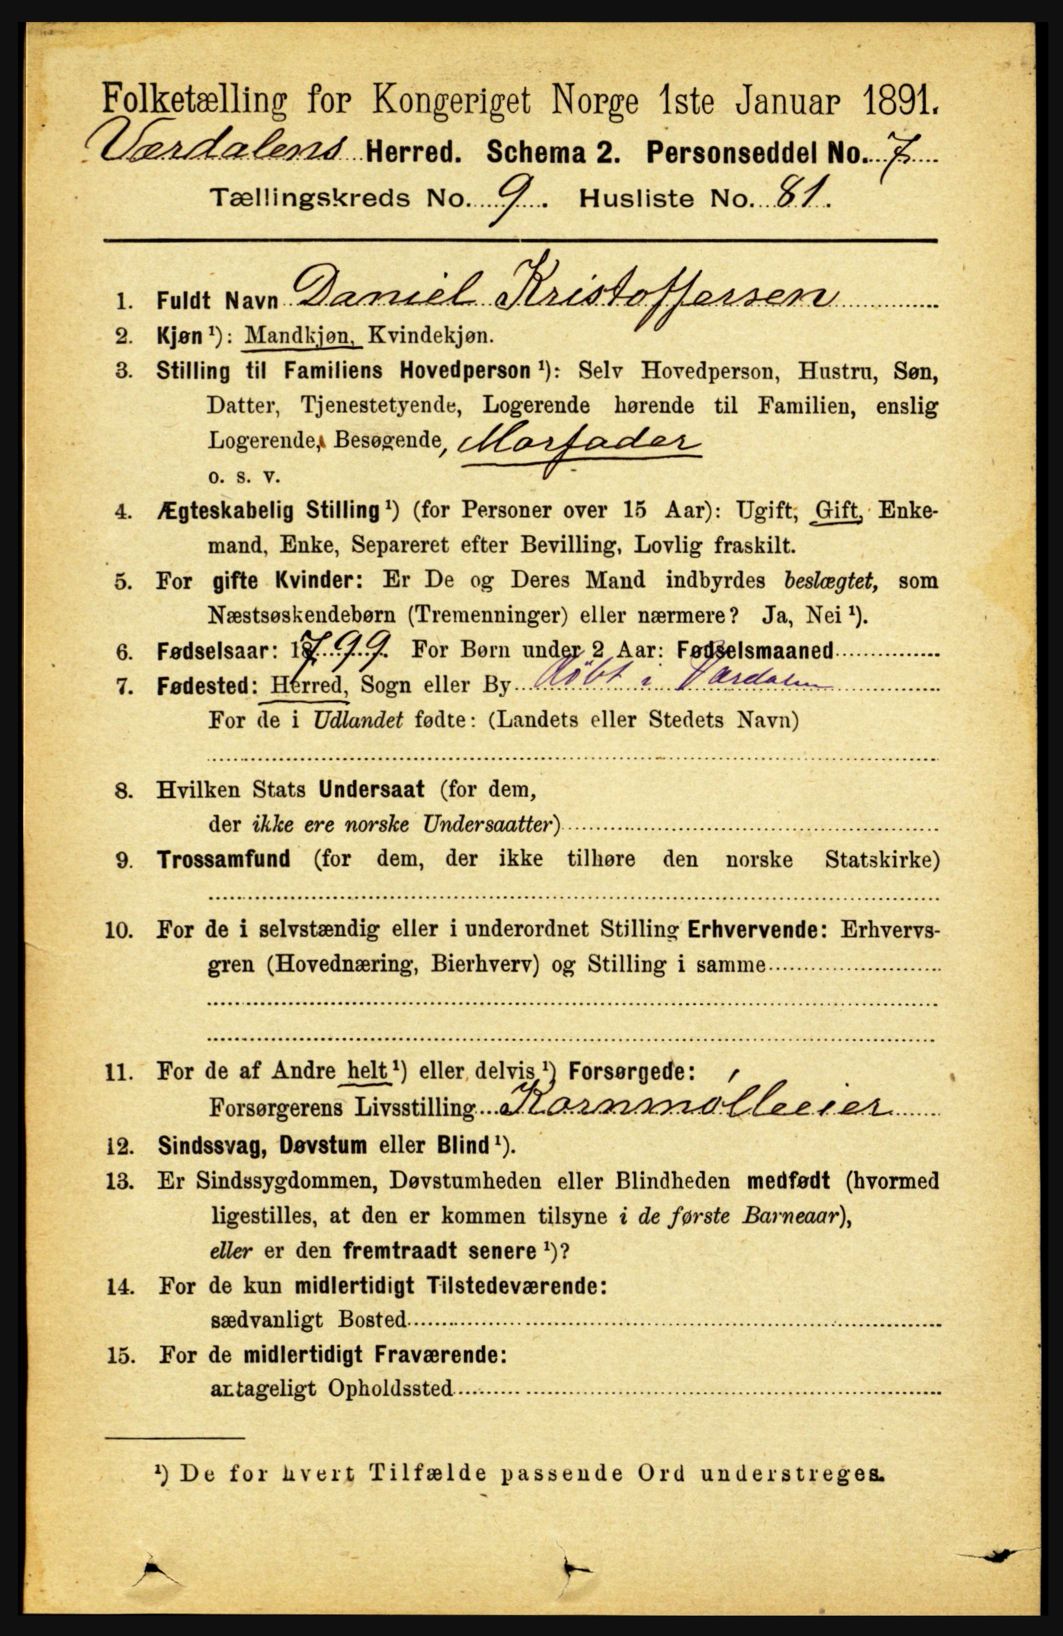 Folketælling for Kongeriget Norge 1ste Januar 1891.
Værdalens Herred. Schema 2. Personseddel No. 7
Tællingskreds No. 9. Husliste No. 81.
1. Fuldt Navn Daniel Kristoffersen
2. Kjøn ¹): Mandkjøn, Kvindekjøn.
3. Stilling til Familiens Hovedperson ¹): Selv Hovedperson, Hustru, Søn,
Datter, Tjenestetyende, Logerende hørende til Familien, enslig
Logerende, Besøgende, Morfader
o. s. v.
4. Ægteskabelig Stilling ¹) (for Personer over 15 Aar): Ugift, Gift, Enke-
mand, Enke, Separeret efter Bevilling, Lovlig fraskilt.
5. For gifte Kvinder: Er De og Deres Mand indbyrdes beslægtet, som
Næstsøskendebørn (Tremenninger) eller nærmere? Ja, Nei ¹).
6. Fødselsaar: 1799. For Børn under 2 Aar: Fødselsmaaned
7. Fødested: Herred, Sogn eller By Døbt i Værdalen
For de i Udlandet fødte: (Landets eller Stedets Navn)
8. Hvilken Stats Undersaat (for dem,
der ikke ere norske Undersaatter)
9. Trossamfund (for dem, der ikke tilhøre den norske Statskirke)
10. For de i selvstændig eller i underordnet Stilling Erhvervende: Erhvervs-
gren (Hovednæring, Bierhverv) og Stilling i samme
11. For de af Andre helt ¹) eller delvis ¹) Forsørgede:
Forsørgerens Livsstilling Kornmølleeier
12. Sindssvag, Døvstum eller Blind ¹).
13. Er Sindssygdommen, Døvstumheden eller Blindheden medfødt (hvormed
ligestilles, at den er kommen tilsyne i de første Barneaar),
eller er den fremtraadt senere ¹)?
14. For de kun midlertidigt Tilstedeværende:
sædvanligt Bosted
15. For de midlertidigt Fraværende:
antageligt Opholdssted
¹) De for hvert Tilfælde passende Ord understreges.